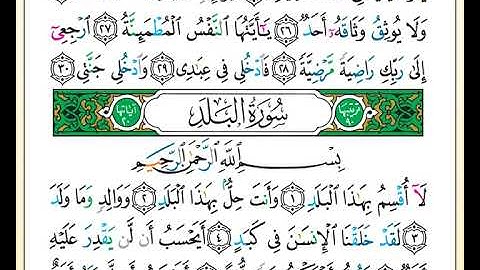 وَلَا يُوثِقُ وَثَاقَهُۥٓ أَحَدٌ ٢٦ يَٰٓأَيَّتُهَا ٱلنَّفْسُ ٱلْمُطْمَئِنَّةُ ٢٧ ٱرْجِعِىٓ
إِلَىٰ رَبِّكِ رَاضِيَةً مَّرْضِيَّةً ٢٨ فَٱدْخُلِى فِى عِبَٰدِى ٢٩ وَٱدْخُلِى جَنَّتِى ٣٠
سُورَةُ البَلَدِ
بِسْمِ ٱللَّهِ ٱلرَّحْمَٰنِ ٱلرَّحِيمِ
لَآ أُقْسِمُ بِهَٰذَا ٱلْبَلَدِ ١ وَأَنتَ حِلٌّۢ بِهَٰذَا ٱلْبَلَدِ ٢ وَوَالِدٍ وَمَا وَلَدَ
٣ لَقَدْ خَلَقْنَا ٱلْإِنسَٰنَ فِى كَبَدٍ ٤ أَيَحْسَبُ أَن لَّن يَقْدِرَ عَلَيْهِ